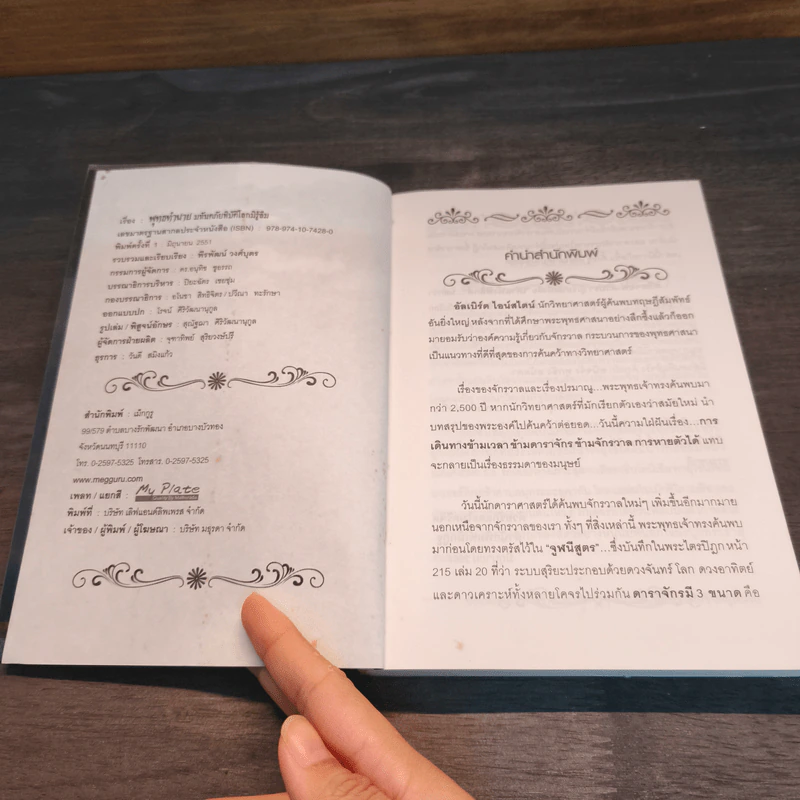 เรื่อง : พุทธทำนาย มหันตภัยพิบัติโลกมิรู้ลืม
เลขมาตรฐานสากลประจำหนังสือ (ISBN) : 978-974-10-7428-0
พิมพ์ครั้งที่ 1 : มิถุนายน 2551
รวบรวมและเรียบเรียง : พีรพัฒน์ วงศ์บุตร
กรรมการผู้จัดการ : ดร.อนุทิช ชูธรรม
บรรณาธิการบริหาร : ปิยะฉัตร เชยชุ่ม
กองบรรณาธิการ : อโนชา สิทธิจิตร / ปวีณา ทะรักษา
ออกแบบปก : ไรจน์ ศิริวัฒนานุกูล
รูปเล่ม / พิสูจน์อักษร : สุณัฐฌา ศิริวัฒนานุกูล
ผู้จัดการฝ่ายผลิต : จุฑาทิพย์ สุริยวงษ์ปรี
ธุรการ : วันดี สมิงแก้ว
สำนักพิมพ์ : เม็กกูรู
99/579 ตำบลบางรักพัฒนา อำเภอบางบัวทอง
จังหวัดนนทบุรี 11110
โทร. 0-2597-5325 โทรสาร. 0-2597-5325
www.megguru.com
เพลท / แยกสี : My Plate
พิมพ์ที่ : บริษัท เอิฟแอนด์ลิพเพรส จำกัด
เจ้าของ / ผู้พิมพ์ / ผู้โฆษณา : บริษัท มธุรดา จำกัด
คำนำสำนักพิมพ์
อัลเบิร์ต ไอน์สไตน์ นักวิทยาศาสตร์ผู้ค้นพบทฤษฎีสัมพัทธ์
อันยิ่งใหญ่ หลังจากที่ได้ศึกษาพระพุทธศาสนาอย่างลึกซึ้งแล้วก็ออก
มายอมรับว่าองค์ความรู้เกี่ยวกับจักรวาล กระบวนการของพุทธศาสนา
เป็นแนวทางที่ดีที่สุดของการค้นคว้าทางวิทยาศาสตร์
เรื่องของจักรวาลและเรื่องปรมาณู...พระพุทธเจ้าทรงค้นพบมา
กว่า 2,500 ปี หากนักวิทยาศาสตร์ที่มักเรียกตัวเองว่าสมัยใหม่ นำ
บทสรุปของพระองค์ไปค้นคว้าต่อยอด...วันนี้ความใฝ่ฝันเรื่อง...การ
เดินทางข้ามเวลา ข้ามดาราจักร ข้ามจักรวาล การหายตัวได้ แทบ
จะกลายเป็นเรื่องธรรมดาของมนุษย์
วันนี้นักดาราศาสตร์ได้ค้นพบจักรวาลใหม่ๆ เพิ่มขึ้นอีกมากมาย
นอกเหนือจากจักรวาลของเรา ทั้งๆ ที่สิ่งเหล่านี้ พระพุทธเจ้าทรงค้นพบ
มาก่อนโดยทรงตรัสไว้ใน "จูฬนีสูตร"...ซึ่งบันทึกในพระไตรปิฎก หน้า
215 เล่ม 20 ที่ว่า ระบบสุริยะประกอบด้วยดวงจันทร์ โลก ดวงอาทิตย์
และดาวเคราะห์ทั้งหลายโคจรไปร่วมกัน ดาราจักรมี 3 ขนาด คือ